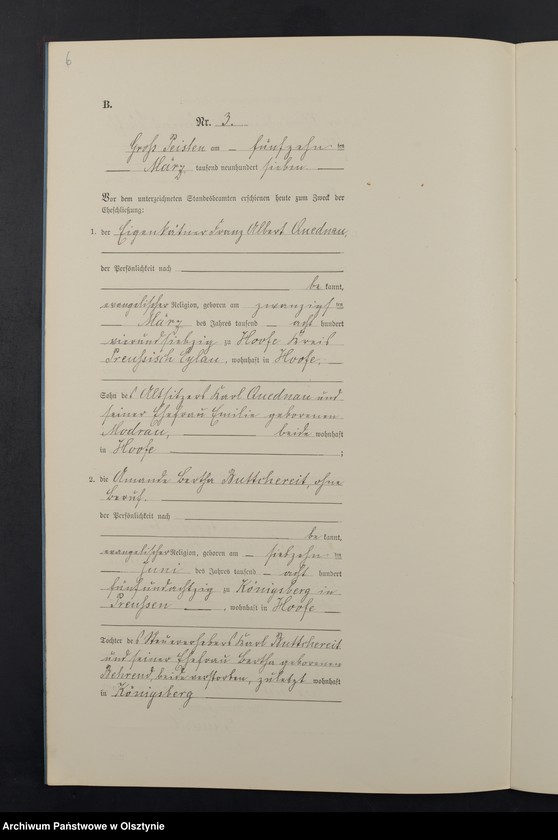 6
B.
Nr. 3.
Groß Peisten am fünfzehn ten
März tausend neunhundert sieben
Vor dem unterzeichneten Standesbeamten erschienen heute zum Zweck der
Eheschließung:
1. der Eigenkätner Franz Albert Quednau,
der Persönlichkeit nach
be kannt,
evangelischer Religion, geboren am zwanzigsten
März des Jahres tausend acht hundert
vierundsiebzig zu Hoofe Kreis
Preußisch Eylau, wohnhaft in Hoofe.
Sohn des Altsitzers Karl Quednau und
seiner Ehefrau Emilie geborenen
Modrau, beide wohnhaft
in Hoofe ;
2. die Amande Bertha Buttchereit, ohne
Beruf.
der Persönlichkeit nach
be kannt,
evangelischer Religion, geboren am siebzehn ten
Juni des Jahres tausend acht hundert
fünfundachtzig zu Königsberg in
Preußen, wohnhaft in Hoofe
Tochter des Steuererhebers Karl Buttchereit
und seiner Ehefrau Bertha geborenen
Behrend, beide verstorben, zuletzt wohnhaft
in Königsberg
Archiwum Państwowe w Olsztynie